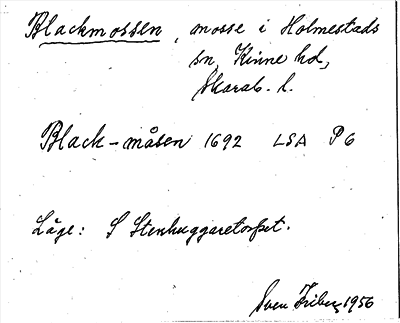 Blackmossen, mosse i Holmestads
sn, Kinne hd,
Skarab. l.
Black-måsen 1692 LSA P 6
Läge: S Stenhuggaretorpet.
Sven Friberg 1956